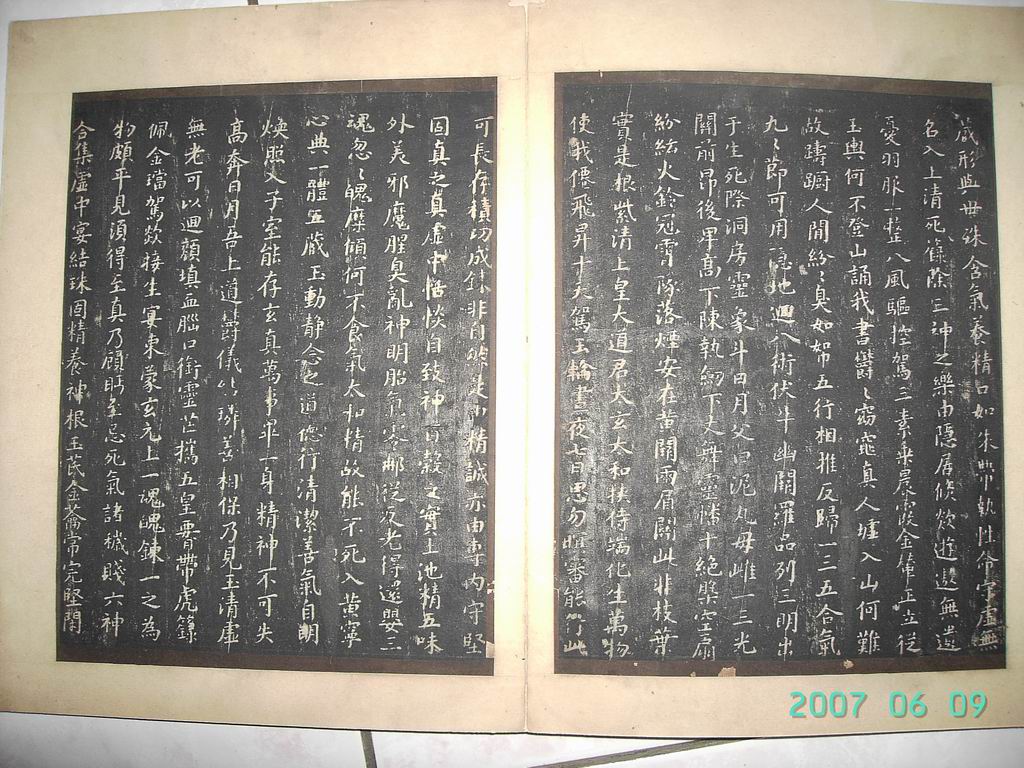 藏形與世殊含氣養精口如朱帶執性命守虛無
名入上清死籙除三神之樂由隱居倏欻遊遨無遺
憂羽服一整八風驅控駕三素乘晨霞金輦正立從
玉輿何不登山誦我書鬱〻窈窕真人墟入山何難
故躊躕人間紛〻臭如帤五行相推反歸一三五合氣
九〻節可用隱地迴八術伏牛幽闕羅品列三明出
于生死際洞房靈象斗日月父曰泥丸母雌一三光
關前昂後卑高下陳執劒下丈舞靈幡十絕槃空扇
紛紜火鈴冠霄隊落煙安在黃闕兩眉間此非枝葉
實是根紫清上皇大道君大玄太和俠侍端化生萬物
使我僊飛昇十天駕玉輪晝夜七日思勿眠審能行此
可長存積功成鍊非自然是由精誠亦由專內守堅
固真之真虛中恬惔自致神百穀之實土地精五味
外美邪魔腥臭亂神明胎氣零那從反老得還嬰三
魂忽〻魄糜傾何不食氣太和精故能不死入黃寧
心典一體五藏王動靜念之道德行清潔善氣自明
煥照入子室能存玄真萬事畢一身精神不可失
高奔日月吾上道鬱儀結璘善相保乃見玉清虛
無老可以迴顏填血腦口銜靈芒攜五皇要帶虎籙
佩金璫駕欻接生宴東蒙玄元上一魂魄鍊一之為
物頗卒見須得至真乃顧眄至忌死氣諸穢賤六神
合集虛中宴結珠固精養神根玉茋金籥常完堅閉
2007 06 09